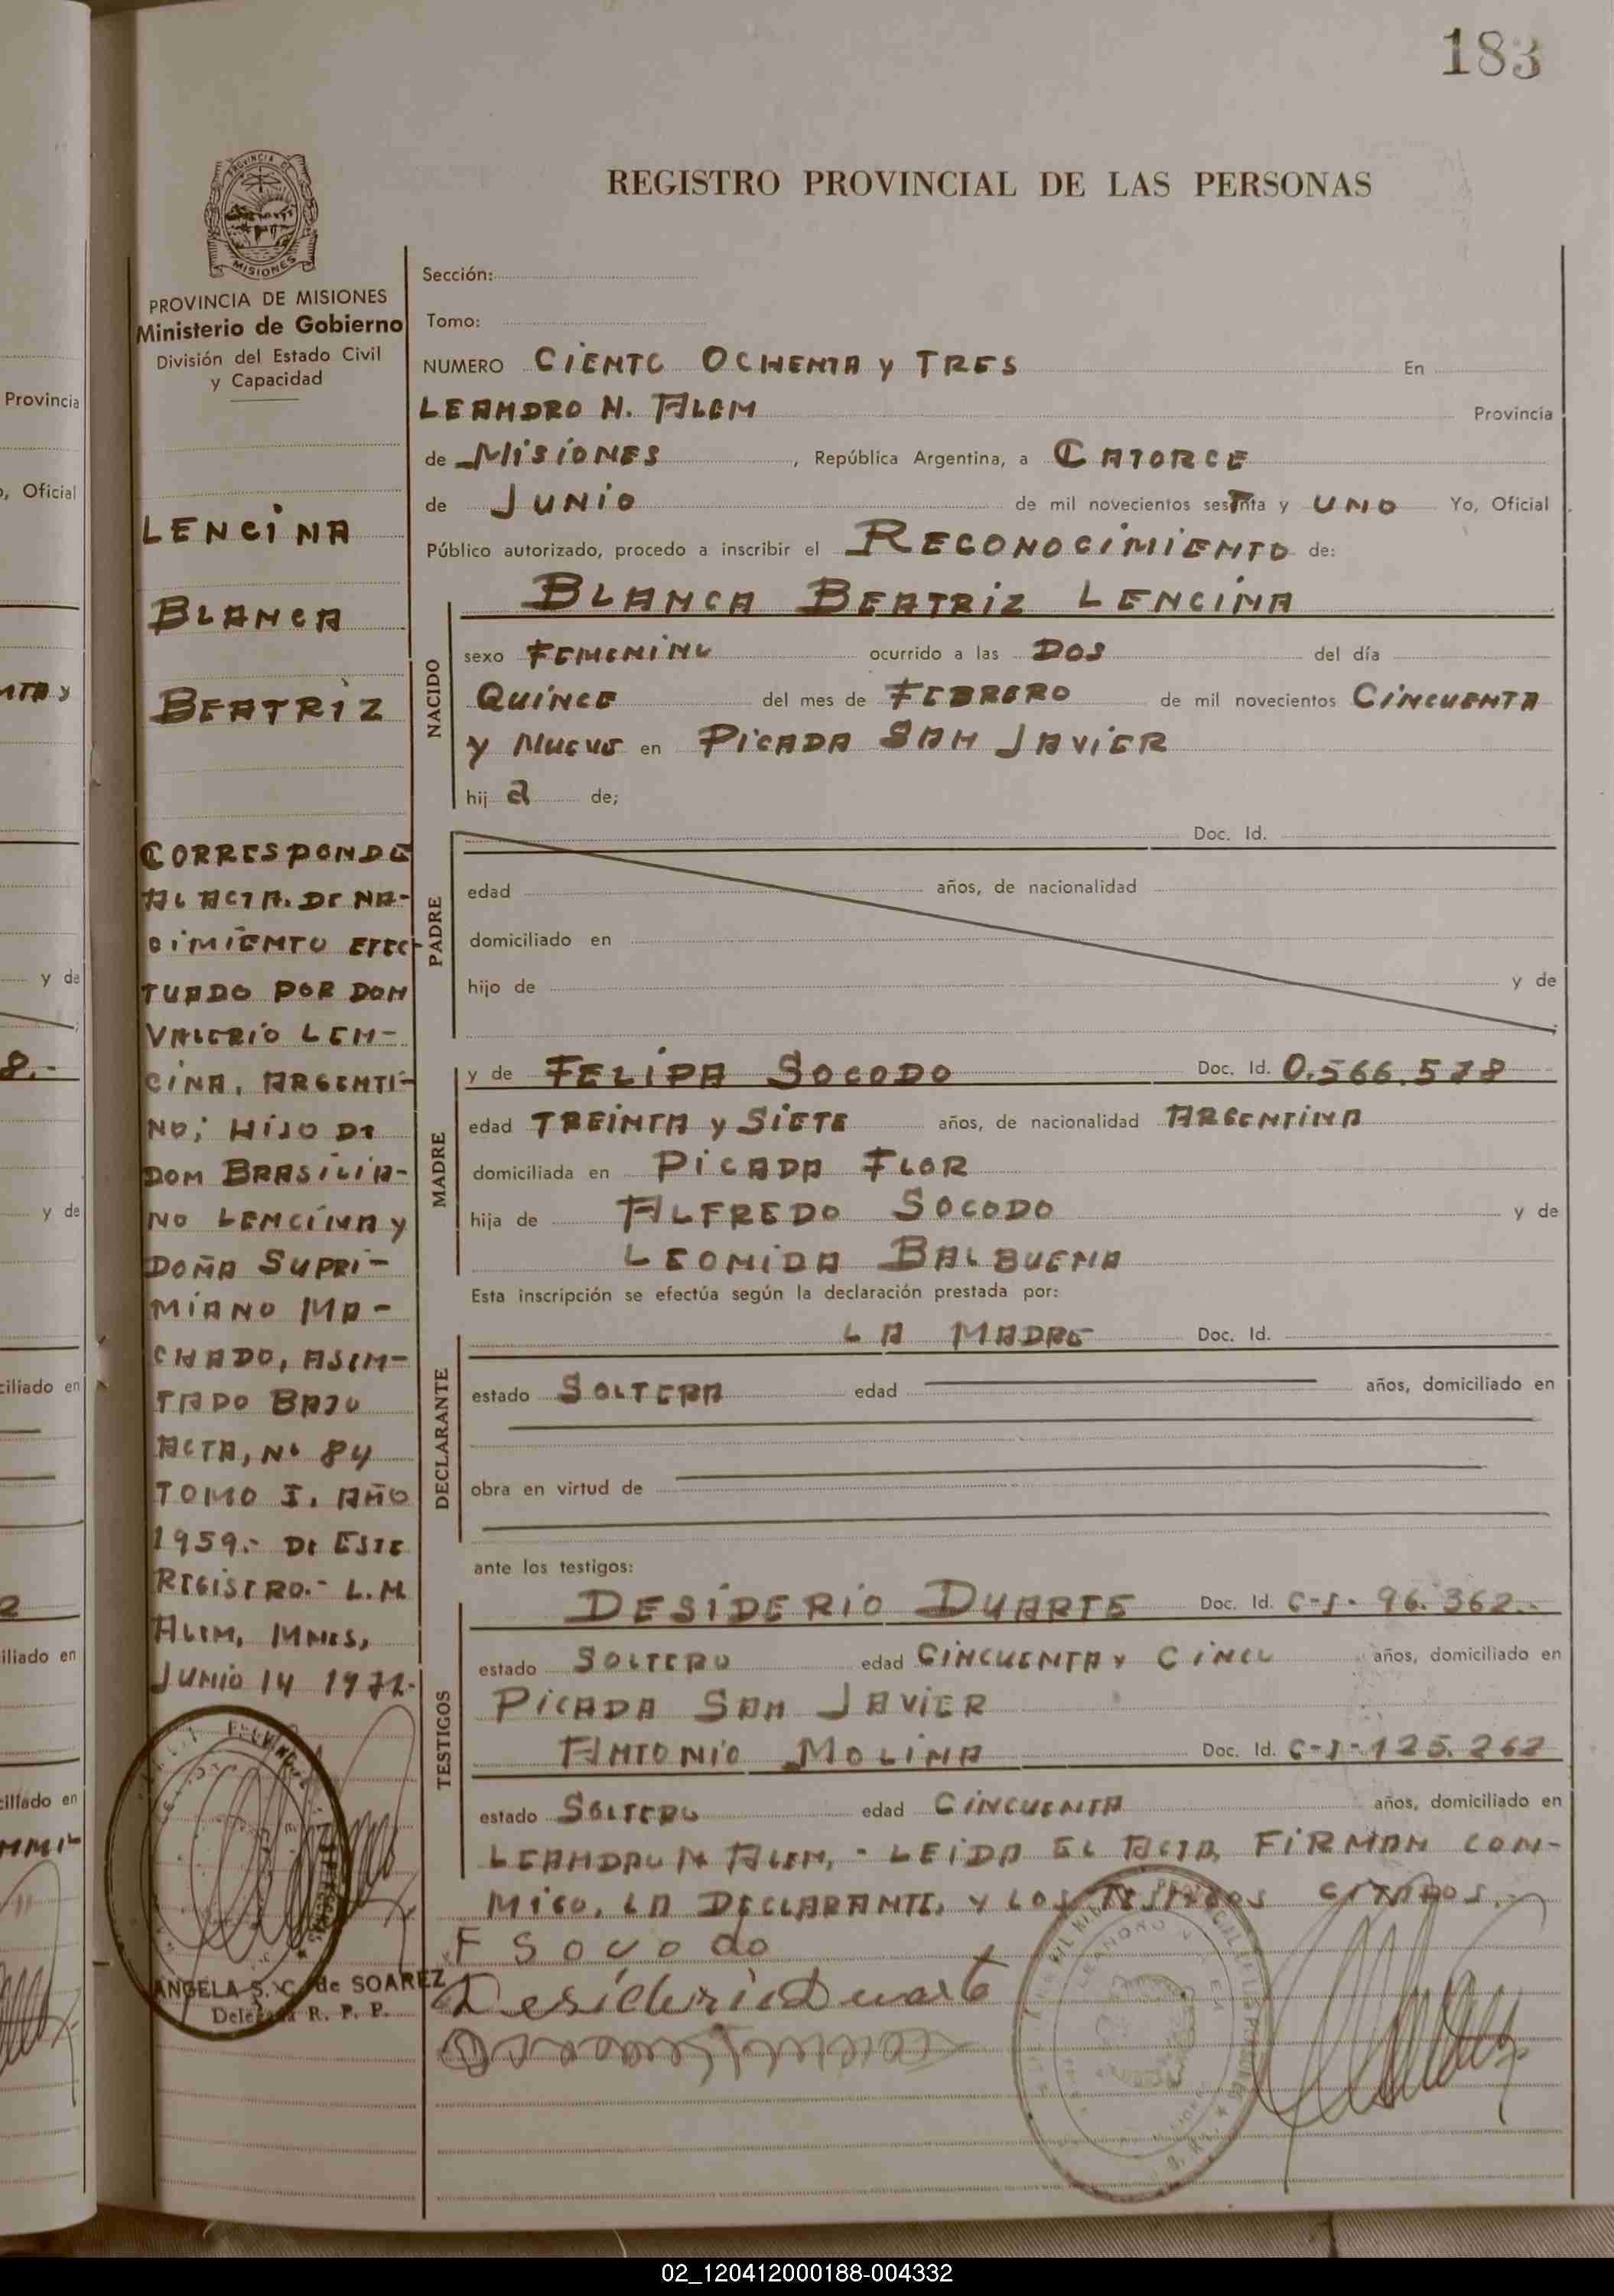 183
REGISTRO PROVINCIAL DE LAS PERSONAS
PROVINCIA DE MISIONES
Ministerio de Gobierno
División del Estado Civil
y Capacidad
LENCINA
BLANCA
BEATRIZ
CORRESPONDE
AL ACTA. DE NA-
CIMIENTO EFEC-
TUADO POR DON
VALERIO LEN-
CINA, ARGENTI-
NO; HIJO DE
DON BRASILIA-
NO LENCINA y
DOÑA SUPRI-
MIANO MA-
CHADO, ASEN-
TADO BAJO
ACTA, Nº 84
TOMO I. AÑO
1959.- DE ESTE
REGISTRO.- L.N.
ALEM, MNES,
JUNIO 14 1971.-
ANGELA S. C. de SOAREZ
Delegada R. P. P.
Sección:
Tomo:
NUMERO CIENTO OCHENTA y TRES En
LEANDRO N. ALEM Provincia
de MISIONES, República Argentina, a CATORCE
de JUNIO de mil novecientos setenta y UNO Yo, Oficial
Público autorizado, procedo a inscribir el RECONOCIMIENTO de:
BLANCA BEATRIZ LENCINA
NACIDO
sexo FEMENINO ocurrido a las DOS del día
QUINCE del mes de FEBRERO de mil novecientos CINCUENTA
y NUEVE en PICADA SAN JAVIER
hij a de;
PADRE
Doc. Id.
edad años, de nacionalidad
domiciliado en
hijo de y de
MADRE
y de FELIPA SOCODO Doc. Id. 0.566.578
edad TREINTA y SIETE años, de nacionalidad ARGENTINA
domiciliada en PICADA FLOR
hija de ALFREDO SOCODO y de
LEONIDA BALBUENA
Esta inscripción se efectúa según la declaración prestada por:
DECLARANTE
LA MADRE Doc. Id.
estado SOLTERA edad años, domiciliado en
obra en virtud de
ante los testigos:
TESTIGOS
DESIDERIO DUARTE Doc. Id. C-I- 96.362.-
estado SOLTERO edad CINCUENTA y CINCO años, domiciliado en
PICADA SAN JAVIER
ANTONIO MOLINA Doc. Id. C-I-125.262
estado SOLTERO edad CINCUENTA años, domiciliado en
LEANDRO N. ALEM,- LEIDA EL ACTA, FIRMAN CON-
MIGO, LA DECLARANTE, y LOS TESTIGOS CITADOS.-
F Socodo
Desiderio Duarte
Provincia
o, Oficial
NTA y
y de
8.-
y de
ciliado en
2
iliado en
ciliado en
02_120412000188-004332